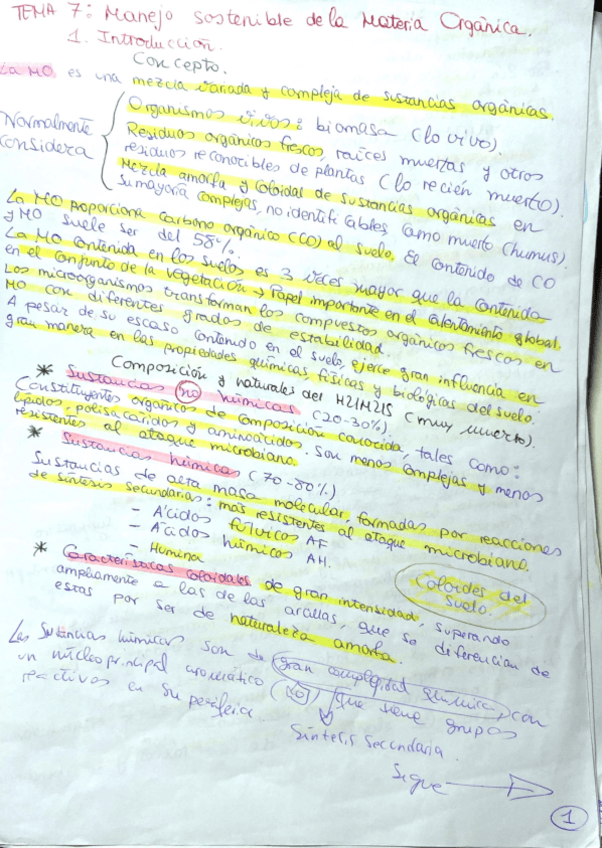 TEMA 7: Manejo sostenible de la Materia Orgánica.
1. Introducción.
Concepto.
La MO es una mezcla variada y compleja de sustancias orgánicas.
Normalmente considera
Organismos vivos: biomasa (lo vivo).
Residuos orgánicos frescos, raíces muertas y otros
residuos reconocibles de plantas (lo recién muerto).
Mezcla amorfa y coloidal de sustancias orgánicas en
su mayoría complejas, no identificables como muerto (humus).
La MO proporciona carbono orgánico (CO) al suelo. El contenido de CO
y MO suele ser del 58%.
La MO contenida en los suelos es 3 veces mayor que la contenida
en el conjunto de la vegetación → Papel importante en el calentamiento global.
Los microorganismos transforman los compuestos orgánicos frescos en
MO con diferentes grados de estabilidad.
A pesar de su escaso contenido en el suelo, ejerce gran influencia en
gran manera en las propiedades químicas, físicas y biológicas del suelo.
Composición y naturales del HUMUS (muy muerto).
* Sustancias no húmicas (20-30%).
Constituyentes orgánicos de composición conocida, tales como:
lípidos, polisacáridos y aminoácidos. Son menos complejas y menos
resistentes al ataque microbiano.
* Sustancias húmicas (70-80%)
Sustancias de alta masa molecular, formadas por reacciones
de síntesis secundarias: más resistentes al ataque microbiano.
- Ácidos fúlvicos AF
- Ácidos húmicos AH.
- Humina
* Características coloidales de gran intensidad, superando
ampliamente a las de las arcillas, que se diferencian de
estas por ser de naturaleza amorfa.
Coloides del suelo.
Las sustancias húmicas son de gran complejidad química, con
un núcleo principal aromático que tiene grupos
reactivos en su periferia.
Síntesis secundaria.
Sigue
1